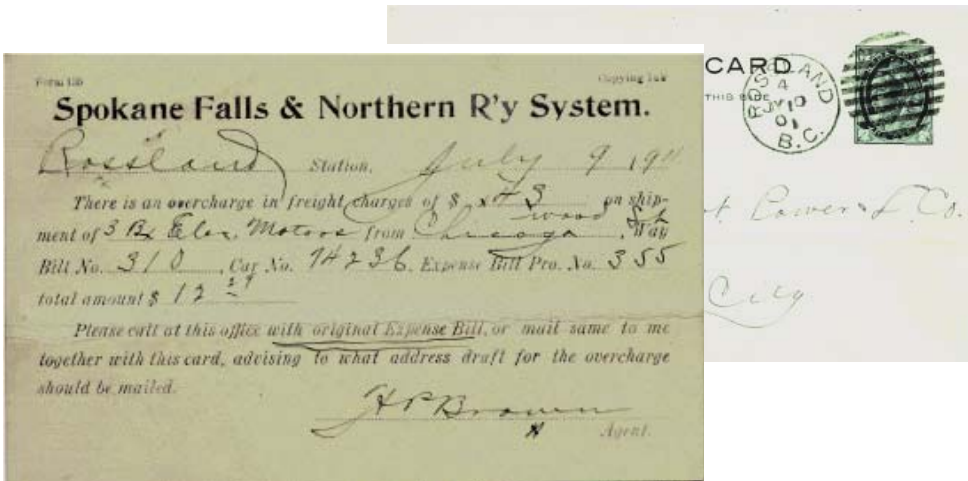 Form 136
Copying Ink
Spokane Falls & Northern R'y System.
Rossland Station, July 9 190
There is an overcharge in freight charges of $ x43 on ship-
ment of 3 Bx Elec. Motors from Chicago wood St. Way
Bill No. 310, Car No. 74236, Expense Bill Pro. No. 355
total amount $ 12 29
Please call at this office with original Expense Bill, or mail same to me
together with this card, advising to what address draft for the overcharge
should be mailed.
HP Brown
Agent.
CARD
THIS SIDE
ROSSLAND
4
JY 10
01
B.C.
t. Power & L. Co.
City